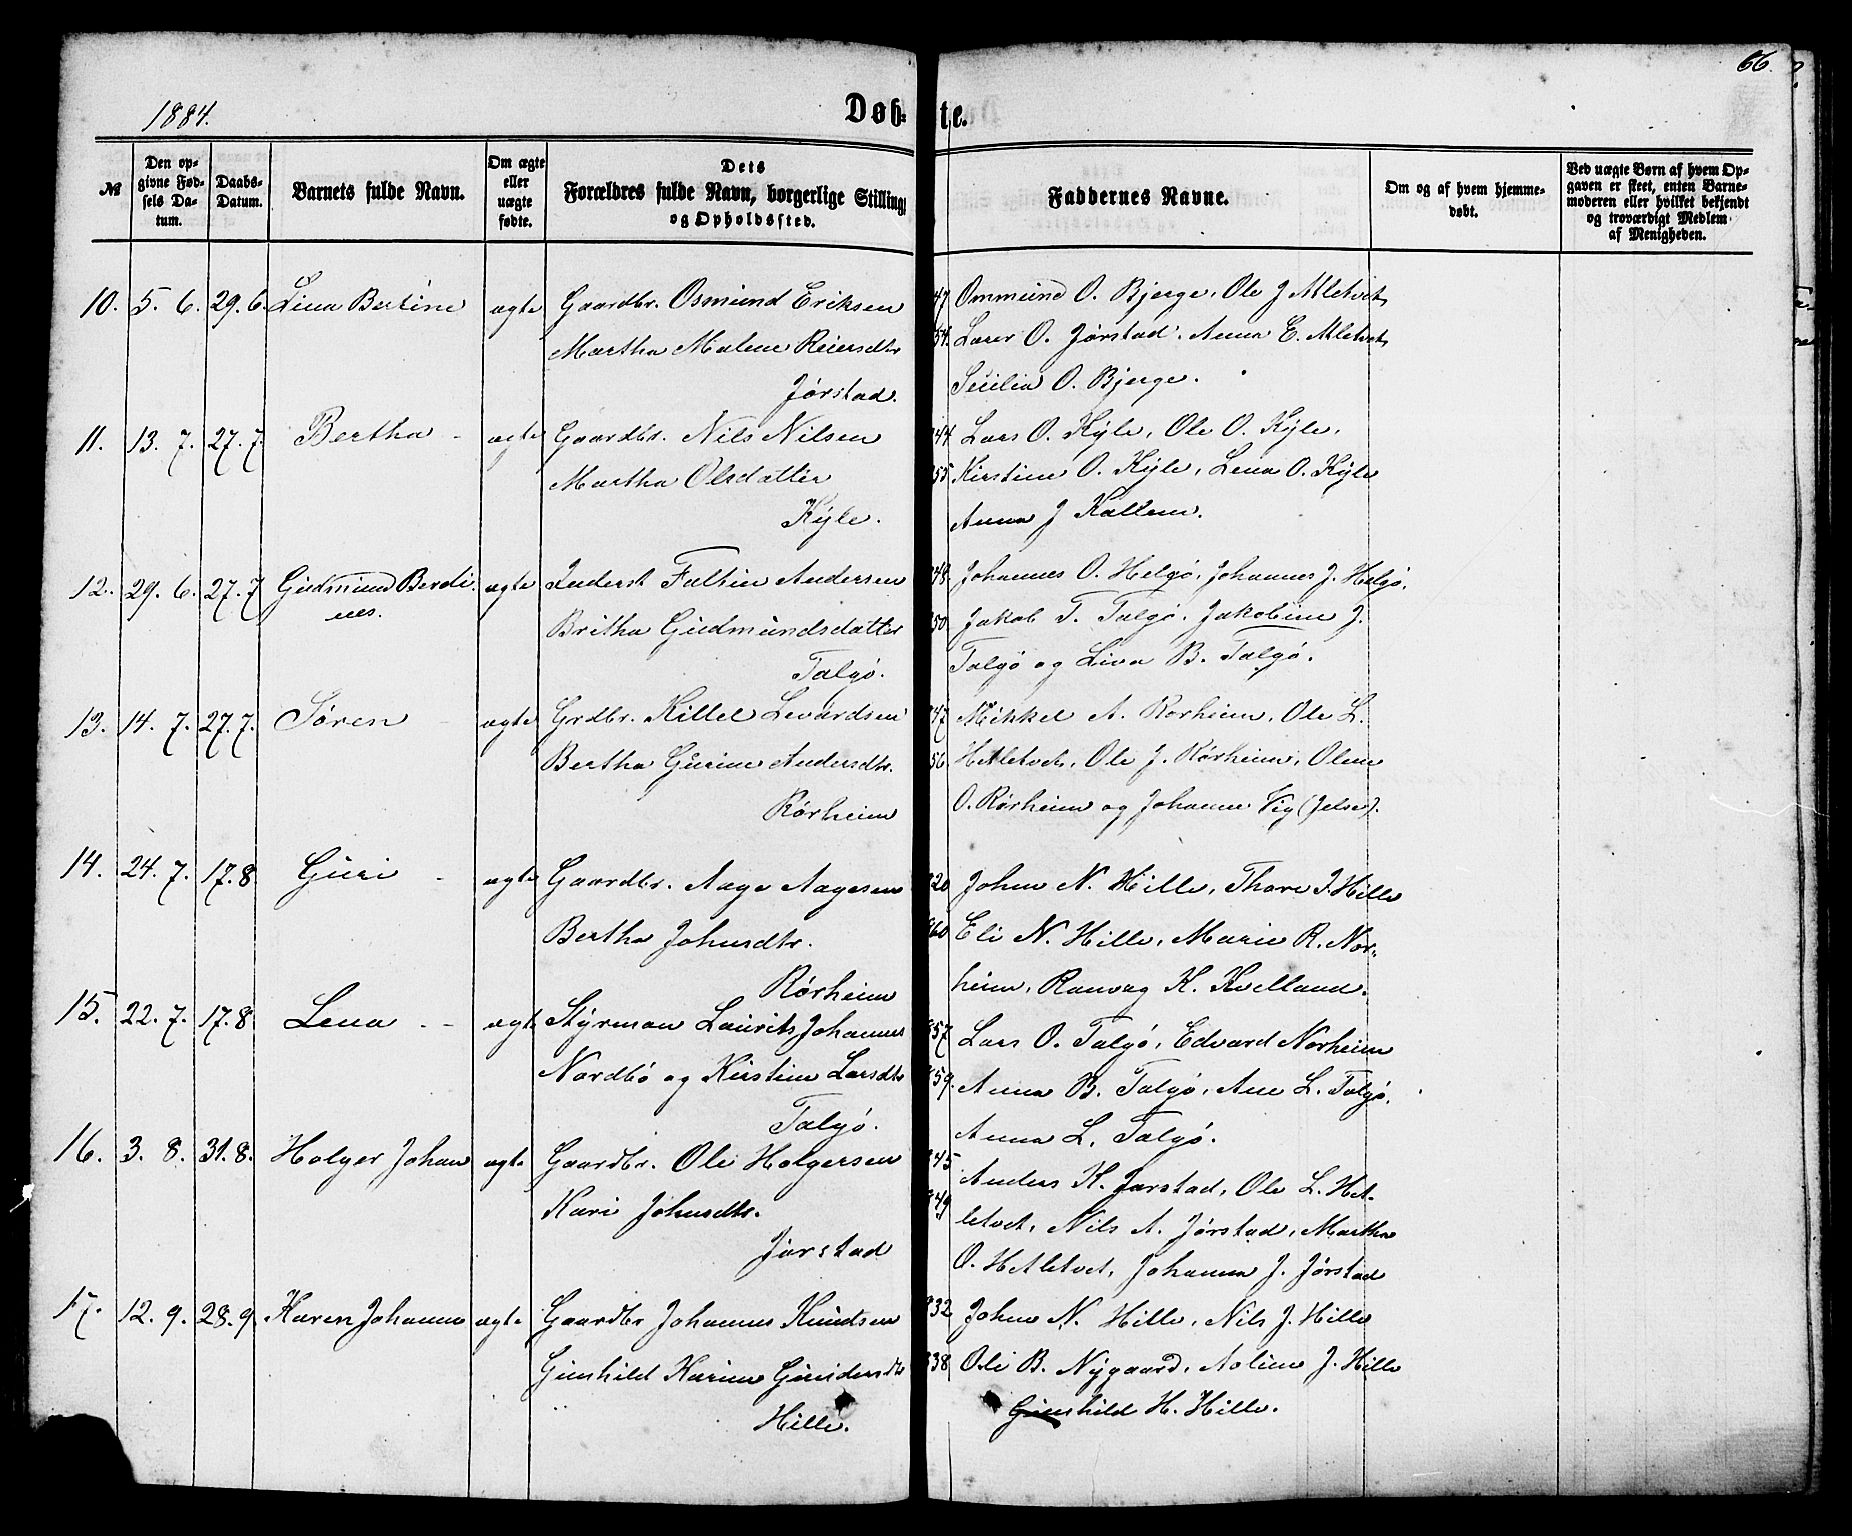 66.
1884.
Døb-te.
№
Den opgivne Fødsels Datum.
Daabs-Datum.
Barnets fulde Navn.
Om ægte eller uægte fødte.
Dets Forældres fulde Navn, borgerlige Stilling og Opholdssted.
Faddernes Navne.
Om og af hvem hjemmedøbt.
Ved uægte Børn af hvem Opgaven er skeet, enten Barnemoderen eller hvilket bekjendt og troværdigt Medlem af Menigheden.
10. 5. 6. 29. 6. Lina Bertine ægte Gaardbr. Osmund Eriksen 47 Ommund O. Bjerge, Ole J Mletvet,
Martha Malene Reiersdtr 54. Laver O. Jørstad, Anna E. Mletvet,
Jørstad. Secilia O. Bjerge.
11. 13. 7. 27. 7. Bertha - ægte Gaardbr. Nils Nilsen 44. Lars O. Kyle, Ole O. Kyle,
Martha Olsdatter 55 Kirstine O. Kyle, Lena O. Kyle
Kyle. Anna J Kallem.
12. 29. 6. 27. 7 Gudmund Berdi- ægte Inderst Faltin Andersen 48. Johannes O. Helgø, Johannes J. Helgø,
nes. Britha Gudmundsdatter 50. Jakob T. Talgø, Jakobine J.
Talgø. Talgø og Liva B. Talgø.
13. 14. 7. 27. 7. Søren - ægte Grdbr. Killel Levardsen 47 Mikkel A. Rørheim, Ole L.
Bertha Gurine Andersdtr. 56. Hetletvet, Ole J. Rørheim, Olene
Rørheim O. Rørheim og Johanne Vig (Jelse).
14. 24. 7. 17. 8 Guri - ægte Gaardbr. Aage Aagesen 20 John N. Hille, Thore J. Hille
Bertha Johnsdtr. 60 Eli N. Hille, Marie R. Nor-
Rørheim heim, Ranvag K. Kvelland.
15. 22. 7. 17. 8 Lena - - ægte Styrman Laurits Johannes 57 Lars O. Talgø, Edvard Norheim
Nordbø og Kirstine Larsdtr 59. Anna B. Talgø, Ane L. Talgø,
Talgø. Anna L. Talgø.
16. 3. 8. 31. 8. Holger Johan ægte Gaardbr. Ole Holgersen 45 Anders K. Jørstad, Ole L. Het-
Kari Johnsdtr. 49 letvet, Nils A. Jørstad, Martha
Jørstad O. Hetletvet, Johanna J. Jørstad
17. 12. 9. 28. 9. Karen Johanne ægte Gaardbr Johannes Knudsen 32 John N. Hille, Nils J. Hille
Gunhild Karine Gundersdtr 38 Oli B. Nygaard, Aoline J. Hille
Hille. Gunhild H. Hille.